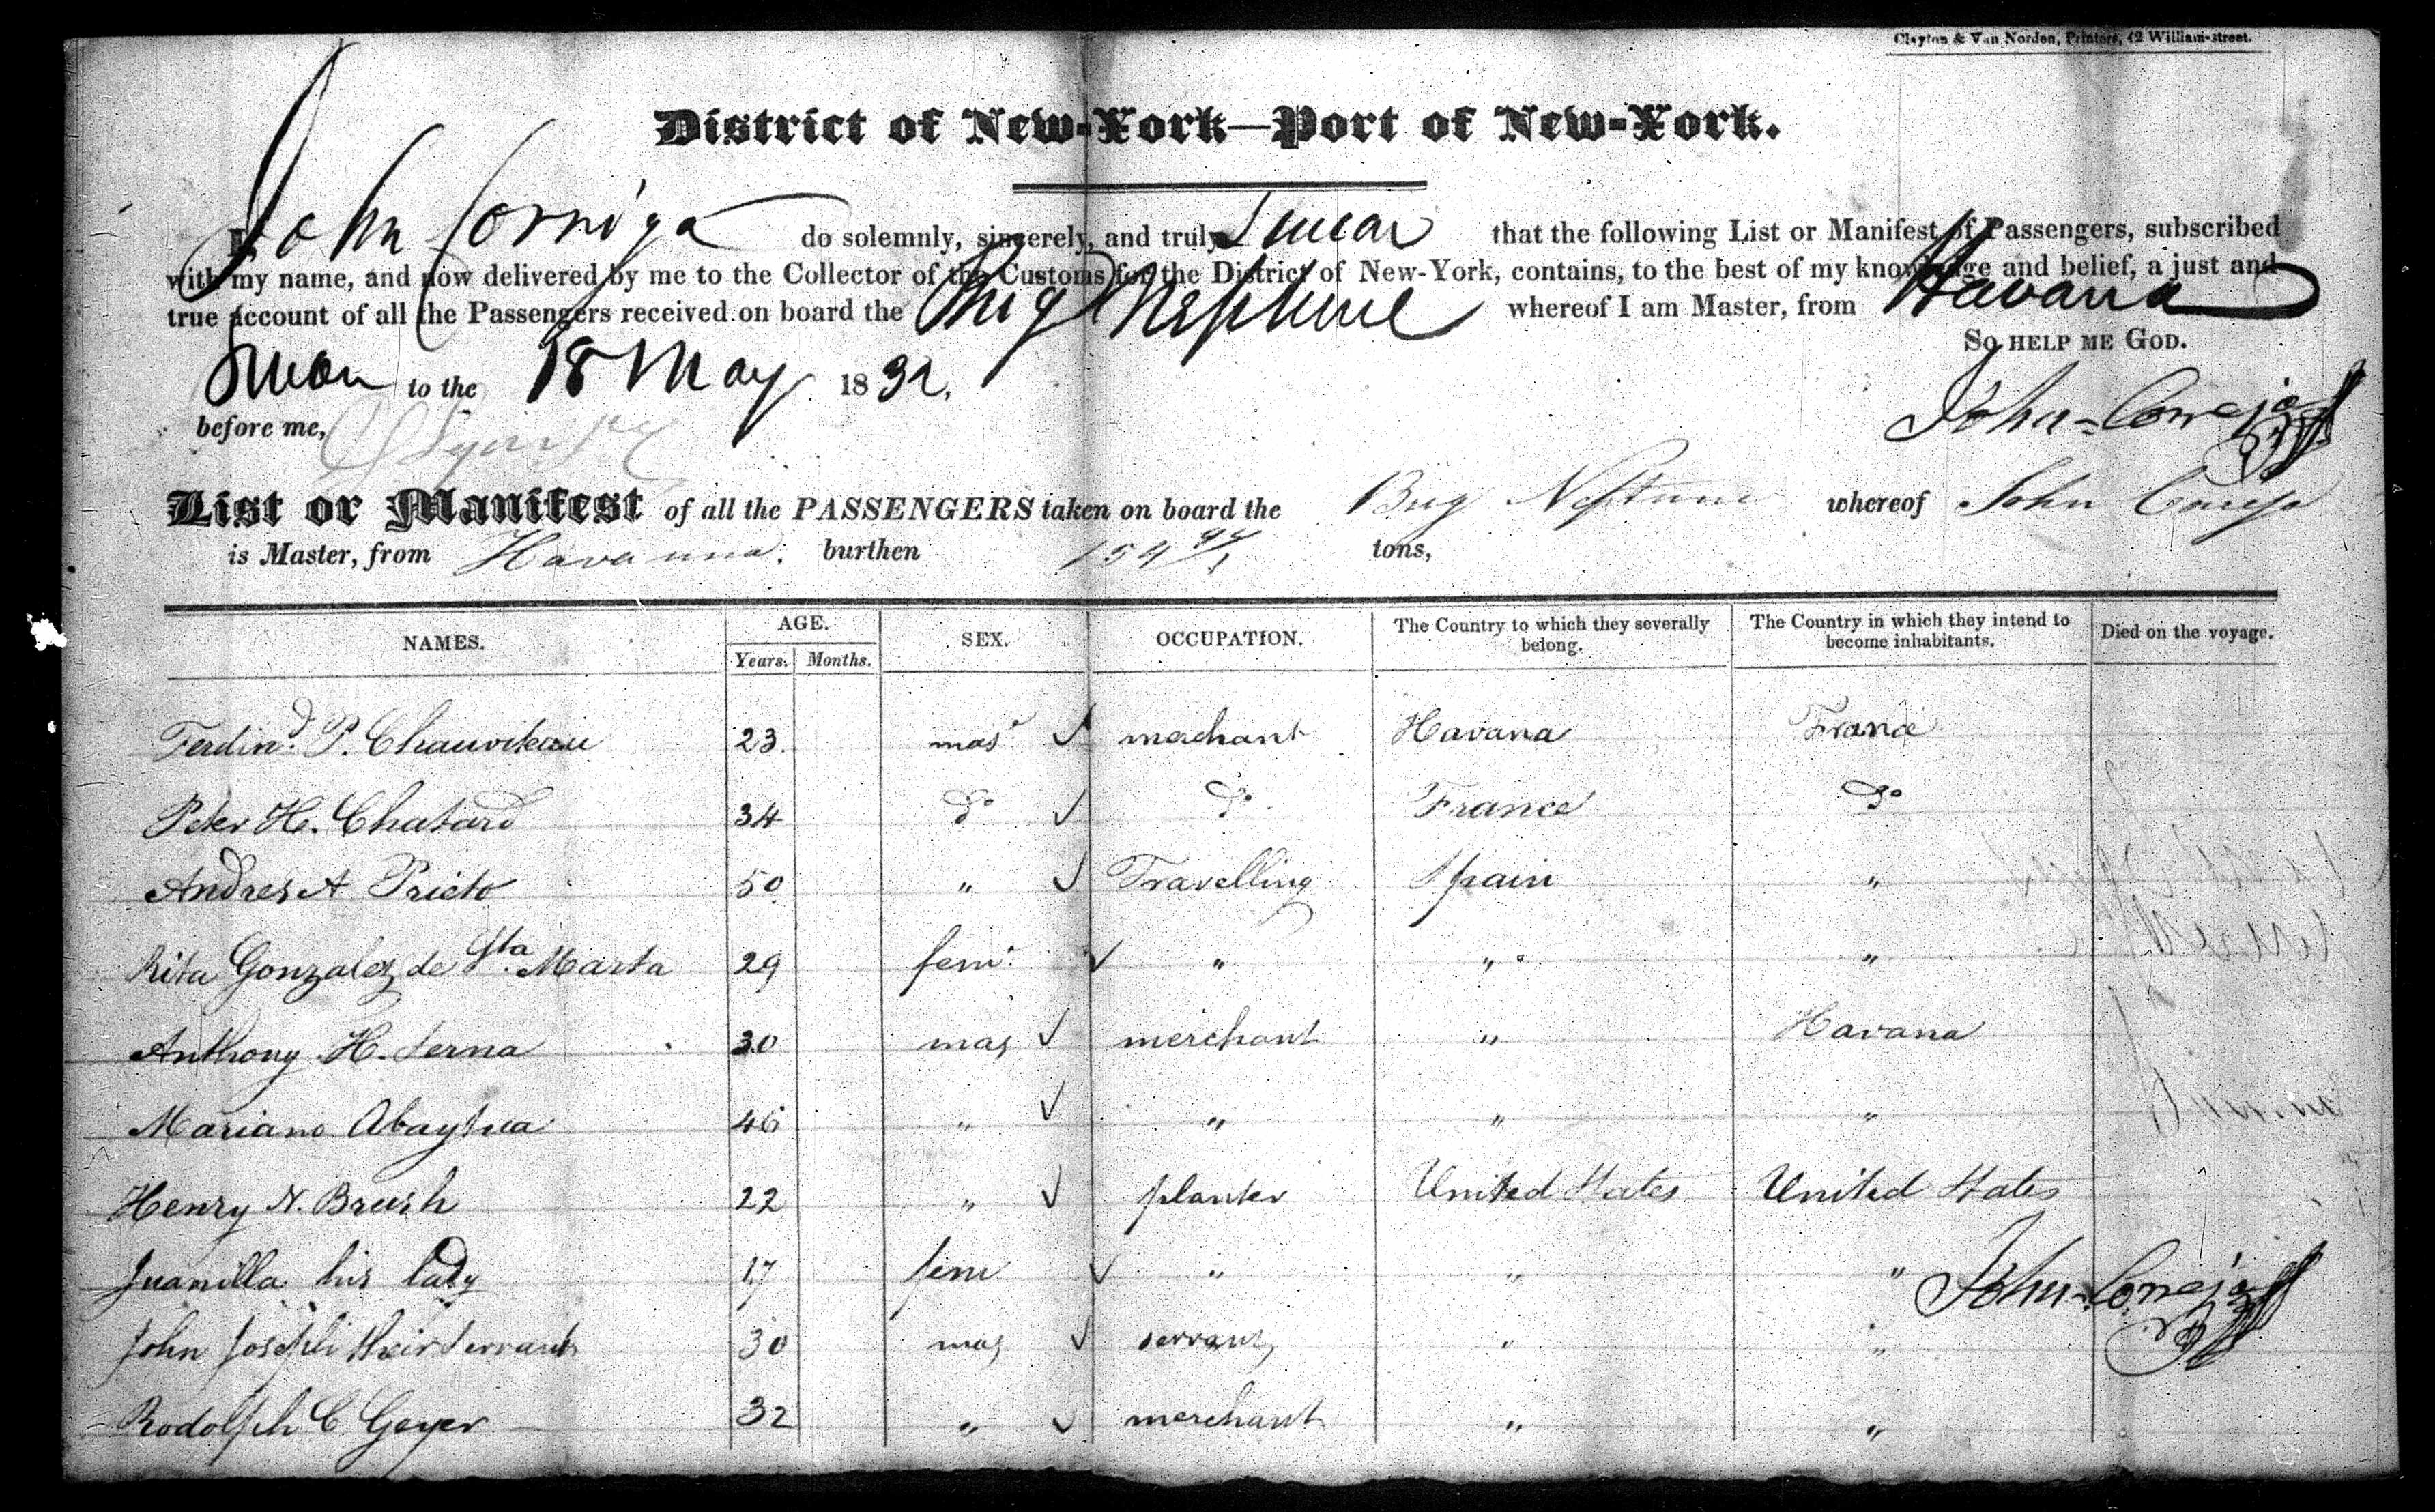 Clayton & Van Norden, Printers, 42 William-street.
District of New-York—Port of New-York.
I, John do solemnly, sincerely, and truly Swear that the following List or Manifest of Passengers, subscribed
with my name, and now delivered by me to the Collector of the Customs for the District of New-York, contains, to the best of my knowledge and belief, a just and
true account of all the Passengers received on board the Brig Neptune whereof I am Master, from Havana
So help me God.
Sworn to the 18 May 1832,
before me,
John
List or Manifest of all the PASSENGERS taken on board the Brig Neptune whereof John
is Master, from Havanna. burthen tons,
NAMES. AGE. SEX. OCCUPATION. The Country to which they severally belong. The Country in which they intend to become inhabitants. Died on the voyage.
Years. Months.
Ferdind. P. Chauviteau 23 mas merchant Havana France
Peter H. Chatard 34 do do France do
Andres A Prieto 50 " Travelling Spain "
Rita Gonzalez de Sta. Marta 29 fem. " " "
Anthony H. Serna 30 mas merchant " Havana
Mariano Abaytua 46 " " " "
Henry N. Brush 22 " planter United States United States
Juanilla his lady 17 fem " " "
John
John Joseph their servant 30 mas servant " "
Rodolph C Geyer 32 " merchant " "